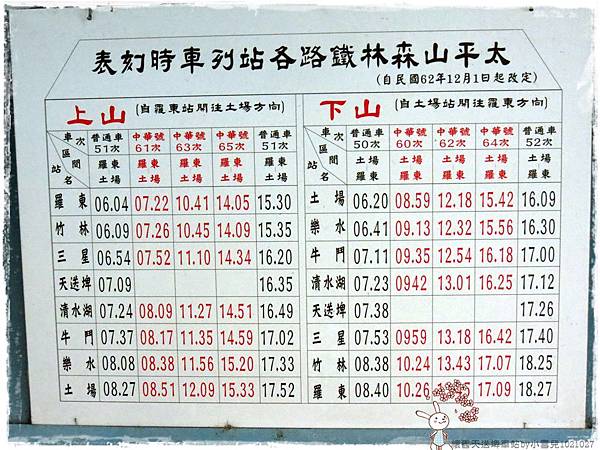 表刻時車列站各路鐵林森山平太
(自民國62年12月1日起改定)
上山 (自羅東站開往土場方向)
車次 區間 站名 普通車51次 中華號61次 中華號63次 中華號65次 普通車51次
羅東 土場 羅東 土場 羅東 土場 羅東 土場 羅東 土場
羅東 06.04 07.22 10.41 14.05 15.30
竹林 06.09 07.26 10.45 14.09 15.35
三星 06.54 07.52 11.10 14.34 16.20
天送埤 07.09 16.35
清水湖 07.24 08.09 11.27 14.51 16.49
牛鬥 07.37 08.17 11.35 14.59 17.02
樂水 08.08 08.38 11.56 15.20 17.33
土場 08.27 08.51 12.09 15.33 17.52
下山 (自土場站開往羅東方向)
車次 區間 站名 普通車50次 中華號60次 中華號62次 中華號64次 普通車52次
土場 羅東 土場 羅東 土場 羅東 土場 羅東 土場 羅東
土場 06.20 08.59 12.18 15.42 16.09
樂水 06.41 09.13 12.32 15.56 16.30
牛鬥 07.11 09.35 12.54 16.18 17.00
清水湖 07.23 0942 13.01 16.25 17.12
天送埤 07.38 17.26
三星 07.53 0959 13.18 16.42 17.40
竹林 08.38 10.24 13.43 17.07 18.25
羅東 08.40 10.26 17.09 18.27
懷舊天送埤車站by小雪兒1021027